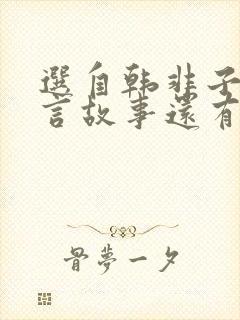 選自韓非子
言故事還有
骨夢一夕